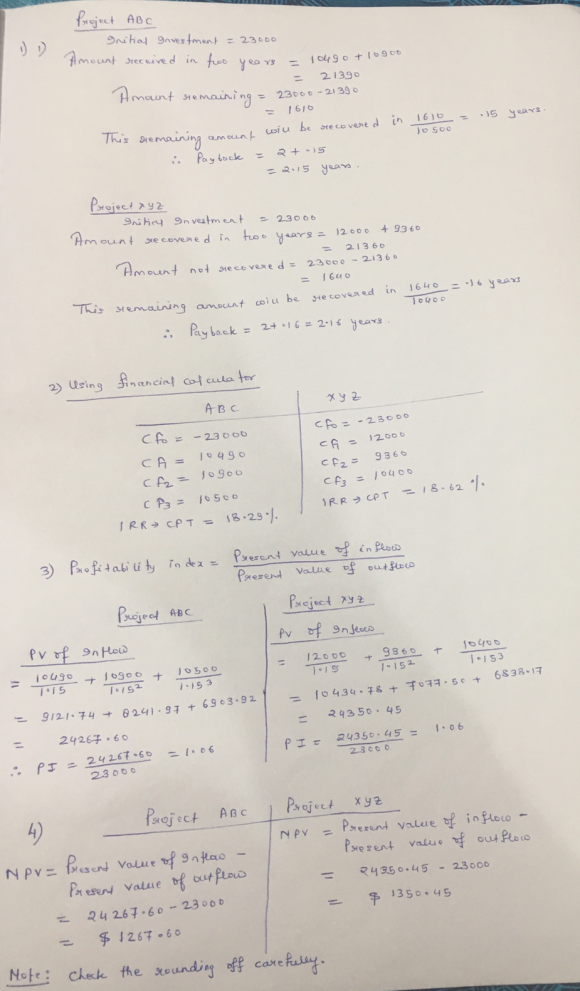 Project ABC
1) 1) Initial Investment = 23000
Amount received in two years = 10490 + 10900
= 21390
Amount remaining = 23000 - 21390
= 1610
This remaining amount will be recovered in 1610/10500 = .15 years.
∴ Payback = 2 + .15
= 2.15 years.
Project xyz
Initial Investment = 23000
Amount recovered in two years = 12000 + 9360
= 21360
Amount not recovered = 23000 - 21360
= 1640
This remaining amount will be recovered in 1640/10400 = .16 years
∴ Payback = 2+.16 = 2.16 years.
2) Using financial calculator
ABC
CF0 = -23000
CF1 = 10490
CF2 = 10900
CF3 = 10500
IRR → CPT = 18.29%.
XYZ
CF0 = -23000
CF1 = 12000
CF2 = 9360
CF3 = 10400
IRR → CPT = 18.62%.
3) Profitability index = Present value of inflow / Present value of outflow
Project ABC
PV of Inflow
= 10490/1.15 + 10900/1.15² + 10500/1.15³
= 9121.74 + 8241.97 + 6903.92
= 24267.60
∴ PI = 24267.60/23000 = 1.06
Project xyz
PV of Inflow
= 12000/1.15 + 9360/1.15² + 10400/1.15³
= 10434.78 + 7077.50 + 6838.17
= 24350.45
PI = 24350.45/23000 = 1.06
4) Project ABC
NPV = Present value of Inflow -
Present value of outflow
= 24267.60 - 23000
= $1267.60
Project xyz
NPV = Present value of inflow -
Present value of outflow
= 24350.45 - 23000
= $1350.45
Note: Check the rounding off carefully.